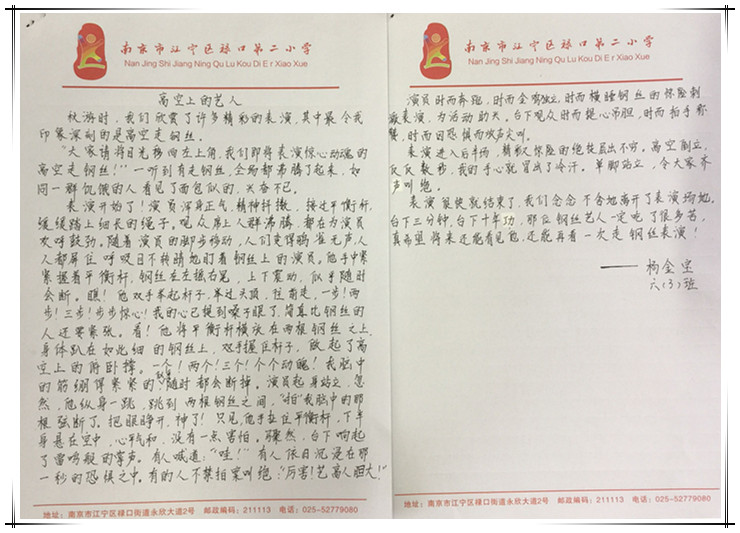 南京市江宁区禄口第二小学
Nan Jing Shi Jiang Ning Qu Lu Kou Di Er Xiao Xue
高空上的艺人
秋游时,我们欣赏了许多精彩的表演,其中最令我
印象深刻的是高空走钢丝。
"大家请将目光移向左上角,我们即将表演惊心动魂的
高空走钢丝!"一听到有走钢丝,全场都沸腾了起来,如
同一群饥饿的人看见了面包似的,兴奋不已。
表演开始了!演员浑身正气,精神抖擞,接过平衡杆,
缓缓踏上细长的绳子。观众席上人群沸腾,都在为演员
欢呼鼓劲。随着演员的脚步移动,人们变得鸦雀无声,人
人都屏住呼吸目不转睛地盯着钢丝上的演员。他手中紧
紧握着平衡杆,钢丝左左摇右晃,上下震动,似乎随时
会断。瞧!他双手举起杆子,举过头顶,往前走,一步!两
步!三步!步步惊心!我的心已提到嗓子眼了,简直比钢丝的
人还要紧张。看!他将平衡杆横放在两根钢丝之上,
身体趴在如此细的钢丝上,双手握住杆子,做起了高
空上的俯卧撑。一个!两个!三个!个个动魄!我脑中
的筋绷得紧紧的,随时都会断掉。演员起身站立,忽
然,他纵身一跳,跳到两根钢丝之间,"啪"我脑中的那
根弦断了。把眼睁开,神了!只见,他手拉住平衡杆,下半
身悬在空中,心平气和,没有一点害怕。骤然,台下响起
了雷鸣般的掌声。有人喊道:"哇!"有人依旧沉浸在那
一秒的恐惧之中。有的人不禁拍案叫绝:"厉害!艺高人胆大!"
地址:南京市江宁区禄口街道永欣大道2号 邮政编码:211113 电话:025-52779080
南京市江宁区禄口第二小学
Nan Jing Shi Jiang Ning Qu Lu Kou Di Er Xiao Xue
演员时而奔跑,时而金鸡独立,时而横睡钢丝的惊险刺
激表演,为活动助兴。台下观众时而提心吊胆,时而拍手称
赞,时而因恐惧而失声尖叫。
表演进入后半场,精彩又惊险的绝技层出不穷。高空倒立,
踱步,我的手心就冒出了冷汗。单脚站立,令大家齐
声叫绝。
表演很快就结束了,我们念念不舍地离开了表演场地。
台下三分钟,台下十年功,那位钢丝艺人一定吃了很多苦,
真希望将来还能看见他,还能再看一次走钢丝表演!
——杨金宝
六(3)班
地址:南京市江宁区禄口街道永欣大道2号 邮政编码:211113 电话:025-52779080